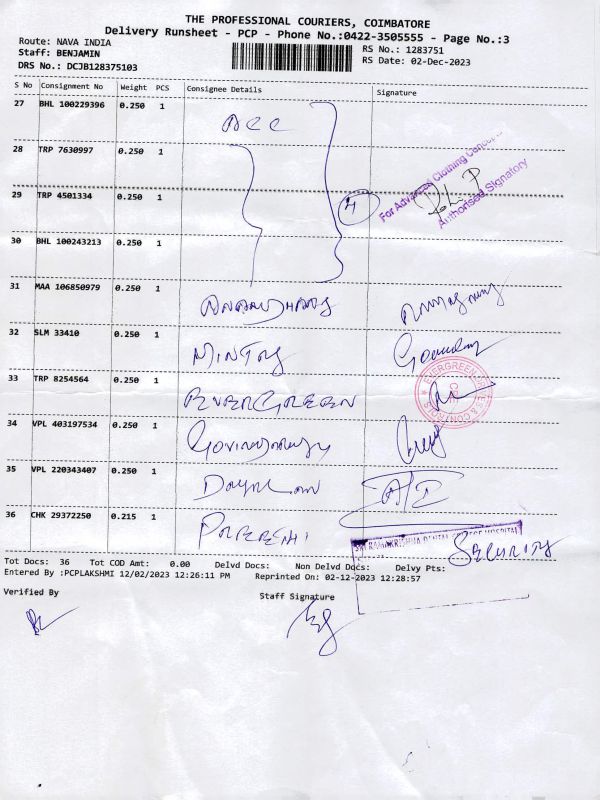 THE PROFESSIONAL COURIERS, COIMBATORE
Delivery Runsheet - PCP - Phone No.:0422-3505555 - Page No.:3
Route: NAVA INDIA
RS No.: 1283751
Staff: BENJAMIN
RS Date: 02-Dec-2023
DRS No.: DCJB128375103
S No Consignment No Weight PCS Consignee Details Signature
27 BHL 100229396 0.250 1
ACC
28 TRP 7630997 0.250 1
For Advanced Clothing
Authorised Signatory
29 TRP 4501334 0.250 1
4
30 BHL 100243213 0.250 1
31 MAA 106850979 0.250 1
32 SLM 33410 0.250 1
33 TRP 8254564 0.250 1 EVERGREEN
EVERGREEN & CONTROLS
34 VPL 403197534 0.250 1
35 VPL 220343407 0.250 1
36 CHK 29372250 0.215 1 PREETHI
SRI RAMAKRISHNA DENTAL COLLEGE HOSPITAL
SECURITY
Tot Docs: 36 Tot COD Amt: 0.00 Delvd Docs: Non Delvd Docs: Delvy Pts:
Entered By :PCPLAKSHMI 12/02/2023 12:26:11 PM Reprinted On: 02-12-2023 12:28:57
Verified By Staff Signature